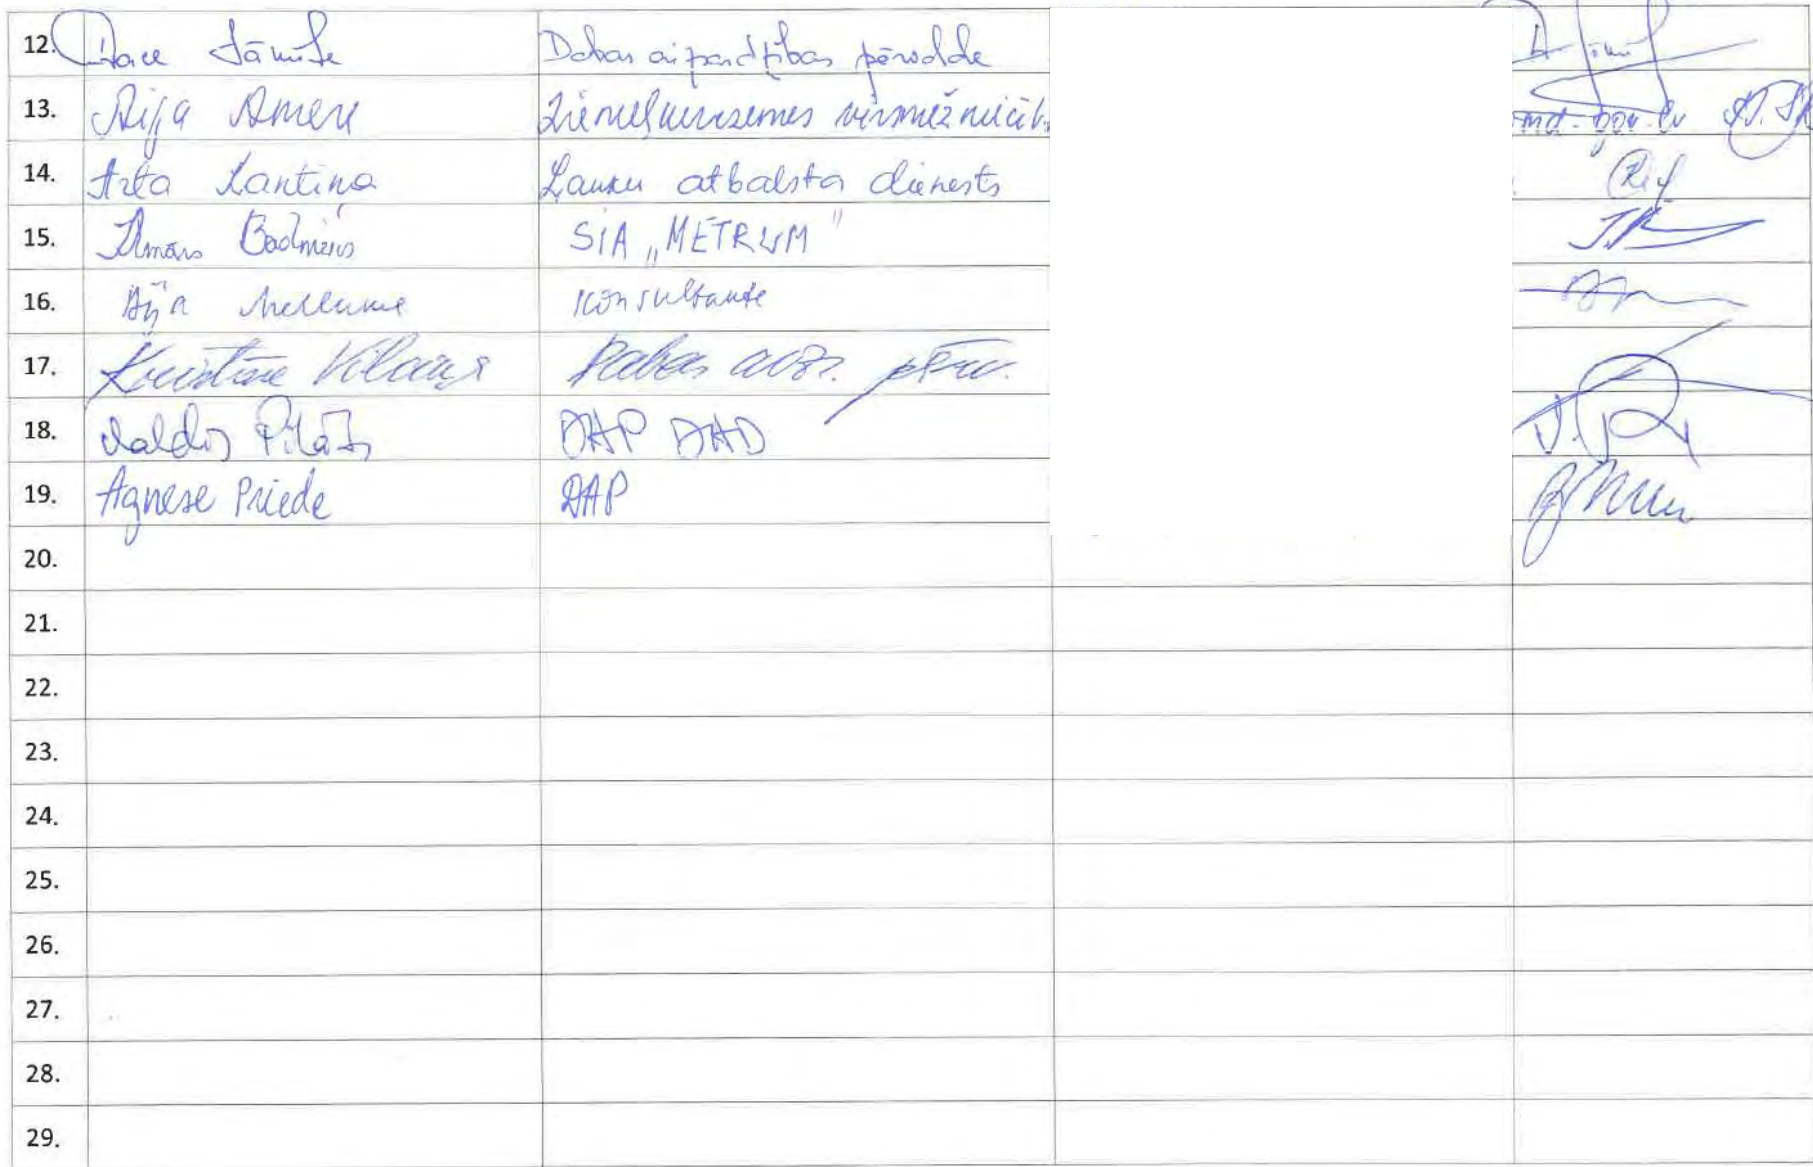 12. Dace Sāmīte Dabas aizsardzības pārvalde
13. Aija Amere Ziemeļkurzemes virsmežniecīb md.gov.lv
14. Azta Lantiņa Lauku atbalsta dienests
15. SIA „METRUM"
16. Aija konsultante
17. Kristīne Vilciņa Dabas aizs. pārv.
18. Valdis Pilāts DAP DAD
19. Agnese Priede DAP
20.
21.
22.
23.
24.
25.
26.
27.
28.
29.